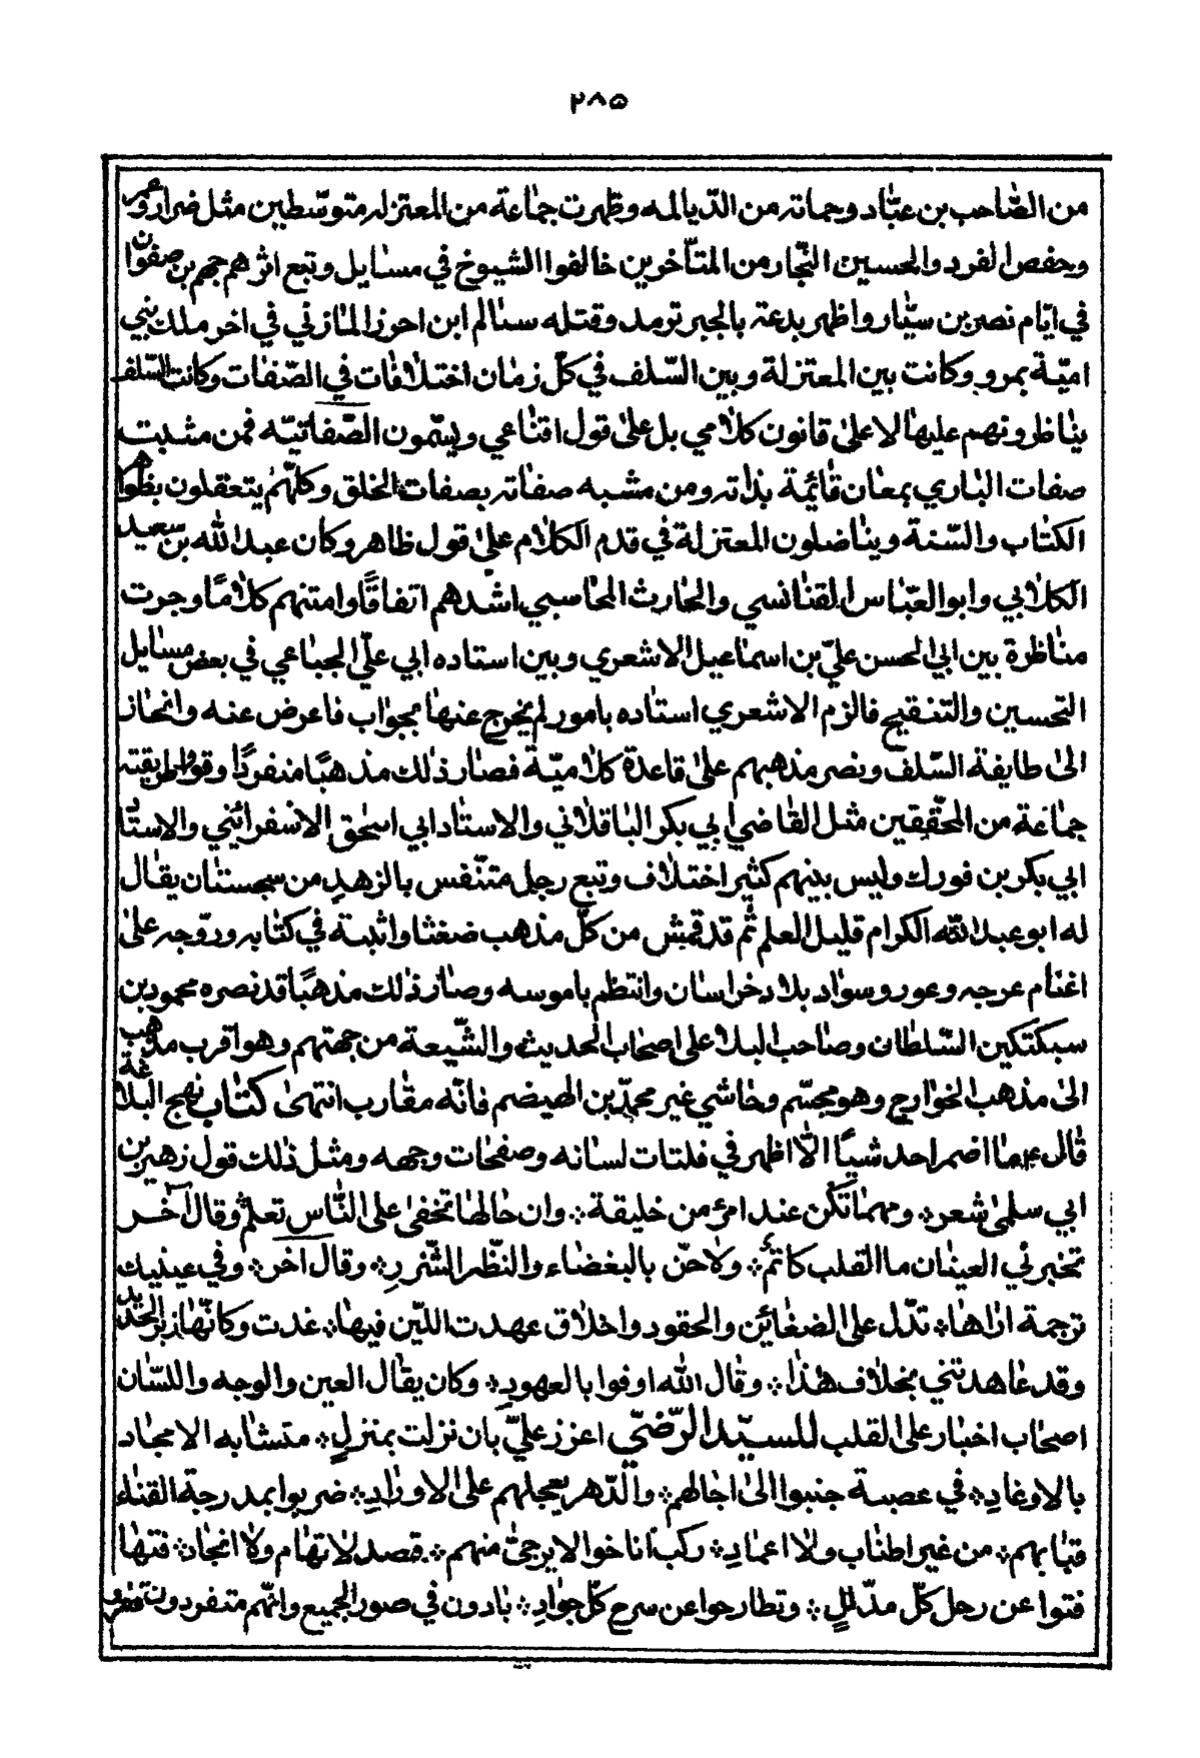 ٢٨٥
من الصّاحب بن عبّاد وجماته من الدّيالمه وظهرت جماعة من المعتزله متوسّطين مثل ضرار وعمر
وحفص الفرد والحسين النّجار من المتأخرين خالفوا الشيوخ في مسايل وتبع اثرهم جهم بن صفون
في ايّام نصر بن سيّار واظهر بدعته بالجبر ترمد وقتله سالم ابن احوز المازني في اخر ملك بني
اميّة بمرو وكانت بين المعتزلة وبين السّلف في كلّ زمان اختلافات في الصّفات وكانت السّلف
يناظرونهم عليها لا على قانون كلامي بل على قول اقناعي ويسمّون الصّفاتيّه فمن مثبت
صفات الباري بمعان قائمة بذاته ومن مشبه صفاته بصفات الخلق وكلّهم يتعقلون بظواهر
الكتاب والسّنة ويناضلون المعتزلة في قدم الكلام على قول ظاهر وكان عبد الله بن سعيد
الكلابي وابو العبّاس القنانسي والحارث المحاسبي اشدهم اتفاقًا وامتنهم كلامًا وجرت
مناظرة بين ابي الحسن عليّ بن اسماعيل الاشعري وبين استاده ابي عليّ الجباعي في بعض مسايل
التحسين والتنقيح فالزم الاشعري استاده بامور لم يخرج عنها بجواب فاعرض عنه وانحاز
الى طايفة السّلف ونصر مذهبهم على قاعدة كلاميّة فصار ذلك مذهبًا منفردًا وقوا طريقته
جماعة من المحقّقين مثل القاضي ابي بكر الباقلاني والاستاد ابي اسحق الاسفرائيني والاستاد
ابي بكر بن فورك وليس بينهم كثير اختلاف وتبع رجل متنّفس بالزهد من سجستان يقال
له ابو عبد الله الكرام قليل العلم ثم قد قمّش من كلّ مذهب ضغثا واثبتة في كتابه وروّجه على
اغنام عرجه وعور وسواد بلاد خراسان وانتظم باموسه وصار ذلك مذهبًا قد نصره محمود بن
سبكتكين السّلطان وصاحب البلا على اصحاب الحديث والشّيعة من جهتهم وهو اقرب مذهب
الى مذهب الخوارج وهو مجسّم وحاشي غير محمّد بن الهيضم فانّه مقارب انتهى كتاب نهج البلاغة
قال ع ما اضمر احد شيًا الّا اظهر في فلتات لسانه وصفحات وجهه ومثل ذلك قول زهير بن
ابي سلمى شعر ؞ ومهما تكن عند امرئ من خليقة ؞ وان حالها تخفى على النّاس تعلم وقال آخر
تخبرني العينان ما القلب كاتم ؞ ولا حنّ بالبغضاء والنّظر الشّزر ؞ وقال اخر ؞ وفي عينيك
ترجمة اراها ؞ تدّل على الضغائن والحقود واخلاق عهدت اللّين فيها ؞ غدت وكأنّها زبر الحديد
وقد عاهدتني بخلاف هذا ؞ وقال الله اوفوا بالعهود ؞ وكان يقال العين والوجه واللسّان
اصحاب اخبار على القلب للسيّد الرّضيّ اعزز عليّ بان نزلت بمنزل ؞ متشابه الامجاد
بالاوغاد ؞ في عصبة جنبوا الى اجالهم ؞ والدّهر يعجلهم على الاوراد ؞ ضربوا بمدرجة الفناء
قبابهم ؞ من غير اطناب ولا اعماد ؞ ركب اناخوا لا يرجى منهم ؞ قصد لاتهام ولا انجاد ؞ فتها
فتوا عن رحل كلّ مذلّل ؞ وتطارحوا عن سرج كلّ جواد ؞ بادون في صور الجميع وانّهم متفردون